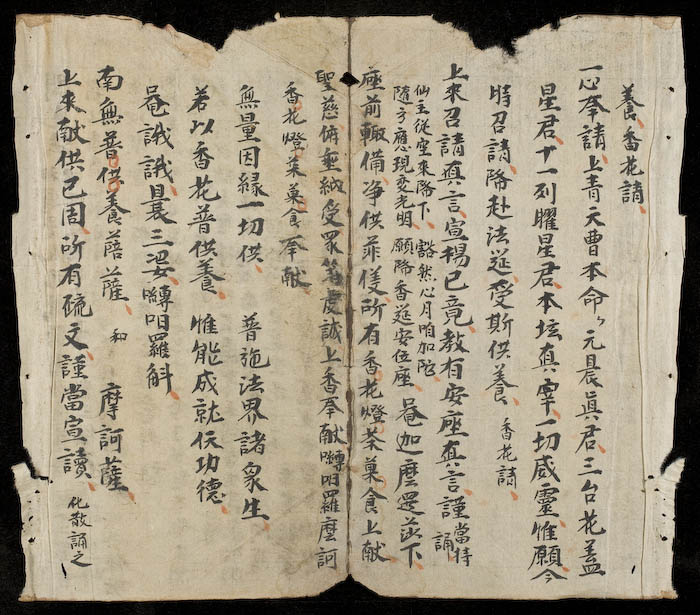 養、香花請、
一心奉請、上青天曹本命〻元晨眞君三台花盖
星君、十一列曜星君、本坛真宰、一切威靈、惟願今
時召請、降赴法筵、受斯供養、 香花請、
上來召請真言宣揚已竟、教有安座真言謹當特誦
仙主從空來降下、豁然心月
隨方應現变光明 願降香筵安位座 唵
座前輙備净供、菲伩所有香花燈茶菓食上献
聖慈俯垂納受、眾等虔誠上香奉献
香花燈茶菓食奉献
無量因緣一切供、 普施法界諸衆生、
若以香花普供養 惟能成就仸功德
唵誐誐曩三婆
南無普供養菩薩、和 摩訶薩、
上來献供已周、所有疏文、謹當宣讀、 化散誦之